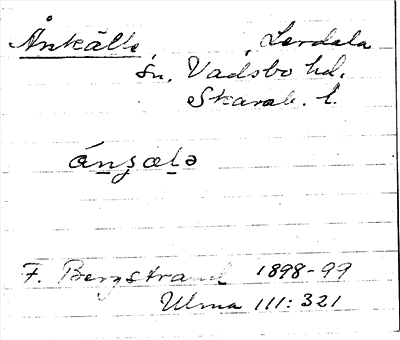 Ånkälle, Lerdala
sn, Vadsbo hd.
Skarab. l.
F. Bergstrand 1898-99
Ulma 111: 321